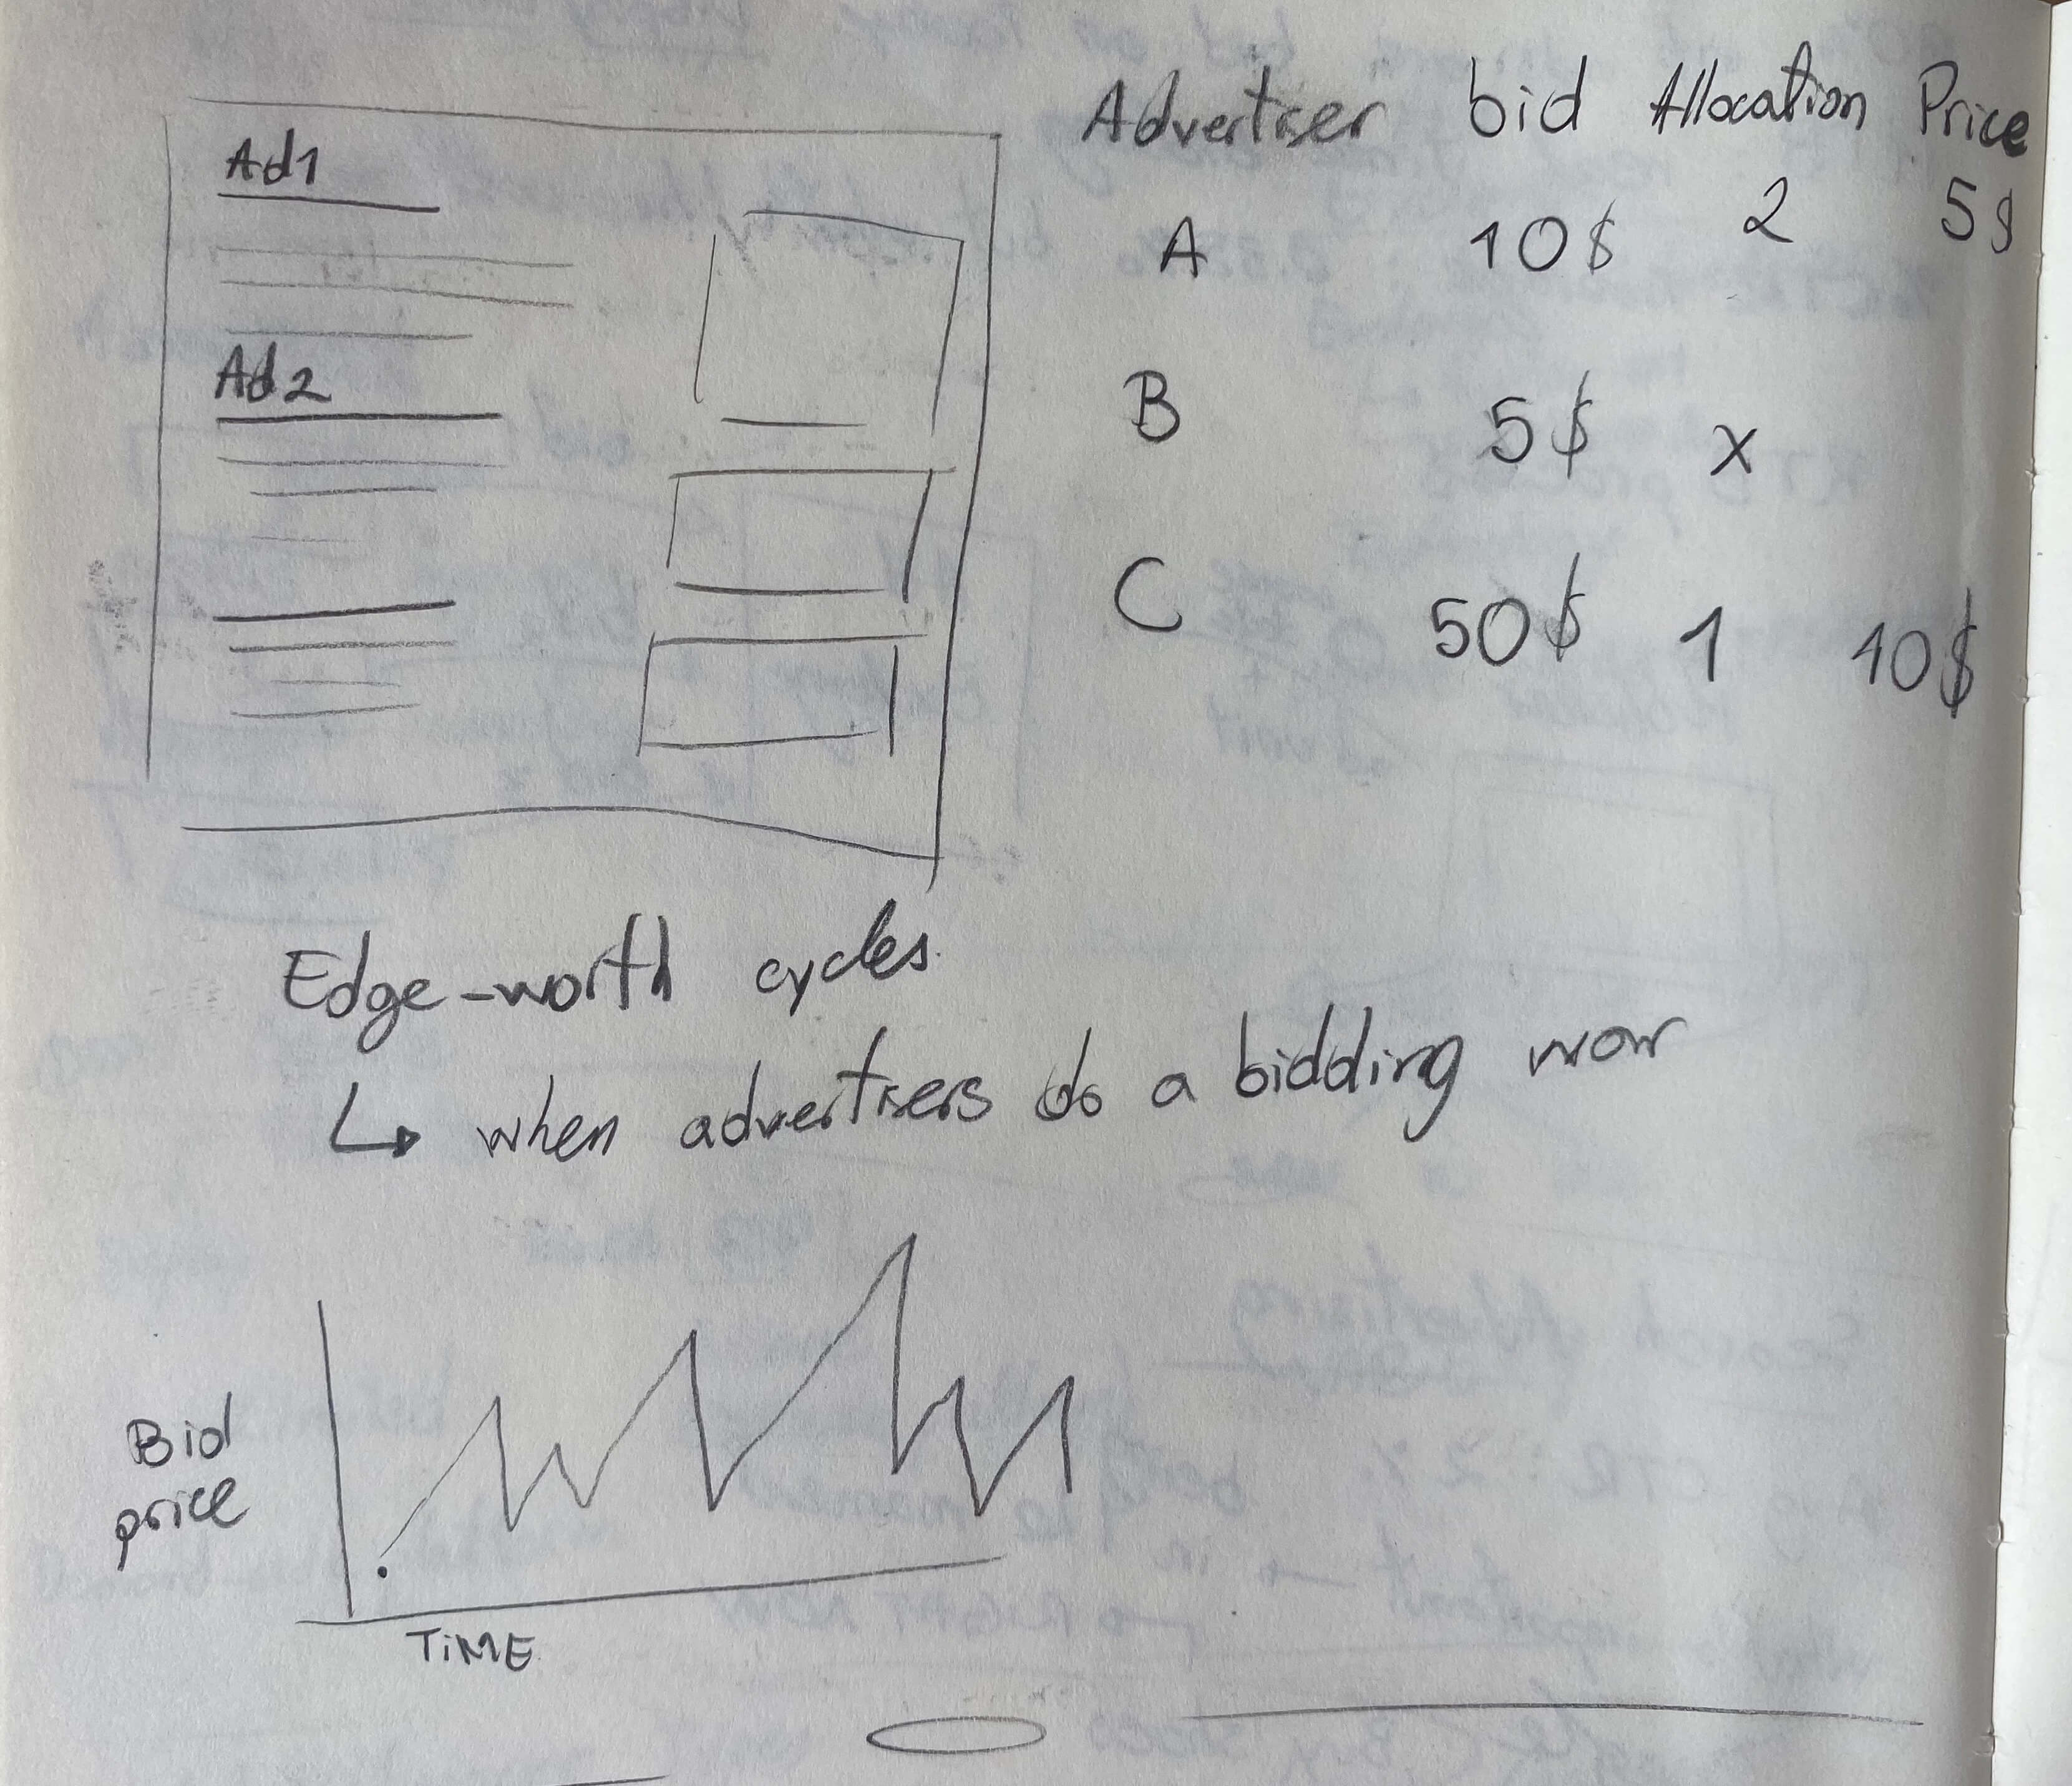 Ad1
Ad2
Advertiser bid Allocation Price
A 10$ 2 5$
B 5$ x
C 50$ 1 10$
Edge-worth cycles.
↳ when advertisers do a bidding war
Bid
price
TiME